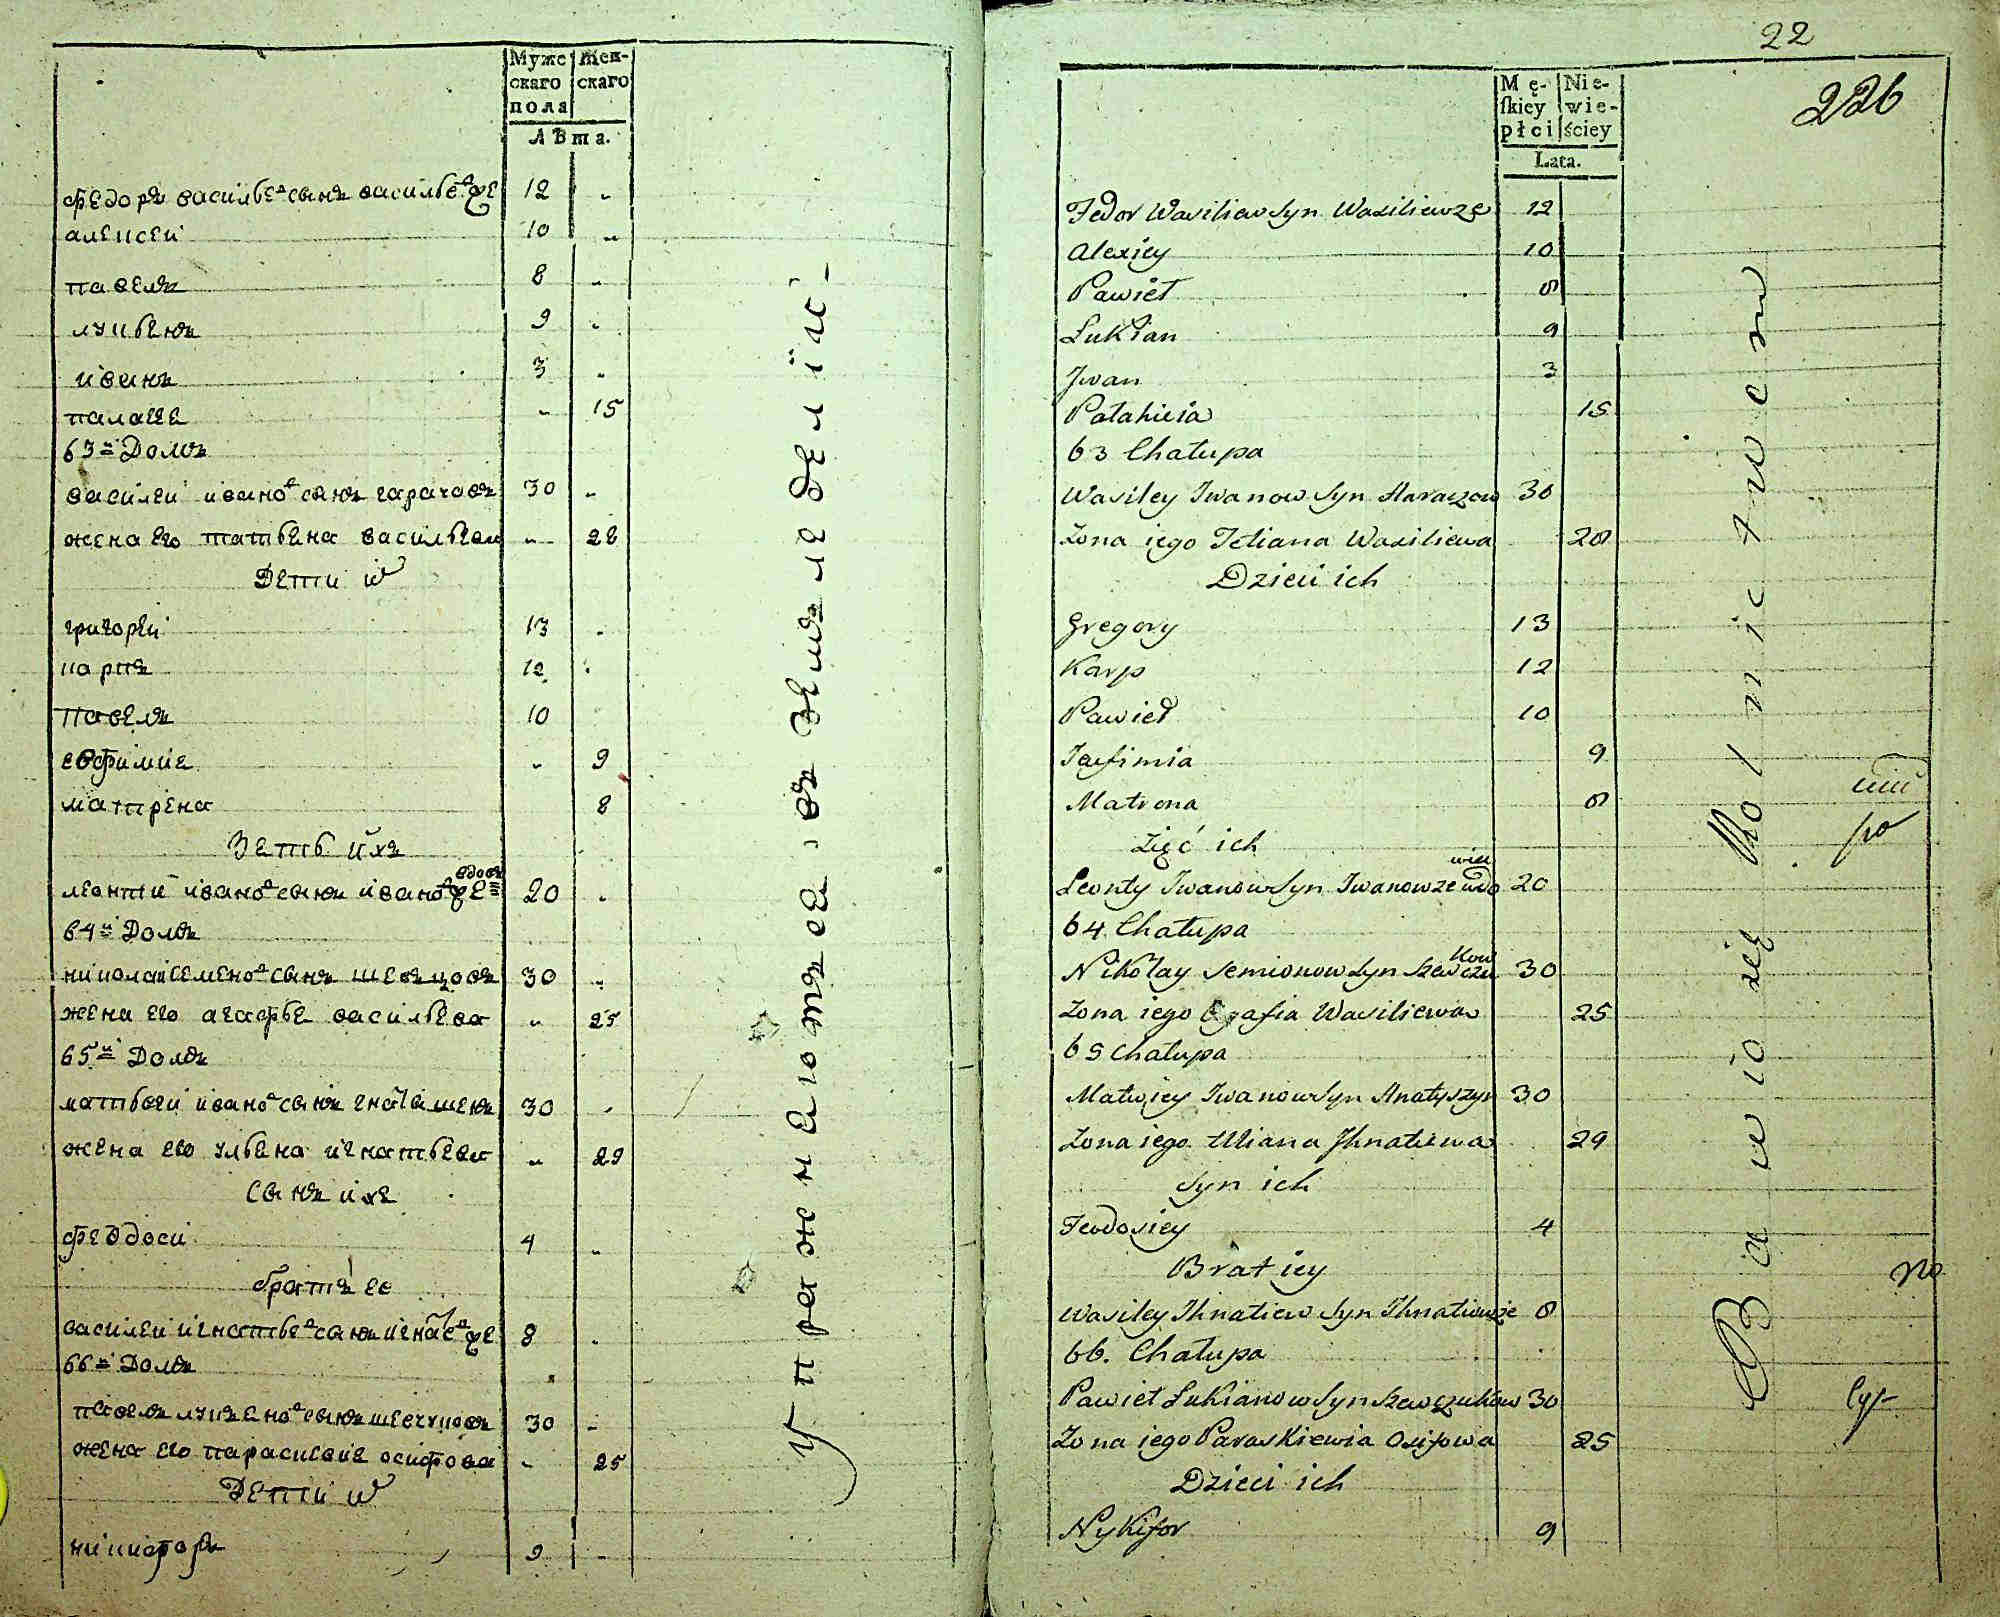 Муже
скаго
пола
Жен-
скаго
Лѣта.
федоръ василье в сынъ василье в
12 „
алексей
10 „
павелъ
8 „
лукьенъ
9 „
иванъ
3 „
палаге
„ 15
63 й Домъ
василеи ивано в сынъ гарачовъ 30 „
жена его татьена васильева „ 28
Дети их
григореи 13
карпъ 12
павелъ 10
евфимие „ 9
матрена 8
Зеть ихъ
леонти ивано в сынъ ивано в 20
вдовъ
64 й Домъ
николаи семено в сынъ шевцовъ 30 „
жена его агафье васильева „ 25
65 й Домъ
матьвеи ивано в сынъ 30
жена его ульена игнатьева „ 29
Сынъ ихъ
феодоси 4 „
братъ ее
василеи игнатье в сынъ 8
66 й Домъ
павелъ лукъено в сынъ шевчуковъ 30 „
жена его параскевие осифова „ 25
Дети их
никифоръ 9 „
упражнаютъца въ земледелїи
22
226
Mę-
skiey
płci
Nie-
wie-
ściey
Lata.
Fedor Wasiliew Syn Wasiliewze 12
Alexiey 10
Pawieł 8
Łukian 9
Jwan 3
Pałahieia 15
63 Chałupa
Wasiley Iwanow Syn Haraczow 30
Zona iego Tetiana Wasiliewa 28
Dzieci ich
Gregory 13
Karp 12
Pawieł 10
Jeufimia 9
Matrona 8
Zięć ich
Leonty Iwanow Syn Iwanowze wdo 20
wiec
64 Chałupa
Nikołay Semionow Syn Szewczu 30
kow
Zona iego Agafia Wasiliewa 25
65 Chałupa
Matwiey Iwanow Syn Hnatyszyn 30
Zona iego Uliana Jhnatiewa 29
Syn ich
Teodosiey 4
Brat iey
Wasiley Ihnatiew Syn Ihnatiewze 8
66. Chałupa
Pawieł Łukianow Syn Szewczukow 30
Zona iego Paraskiewia Osifowa 25
Dzieci ich
Nykifor 9
Bawio się Rolnictwem